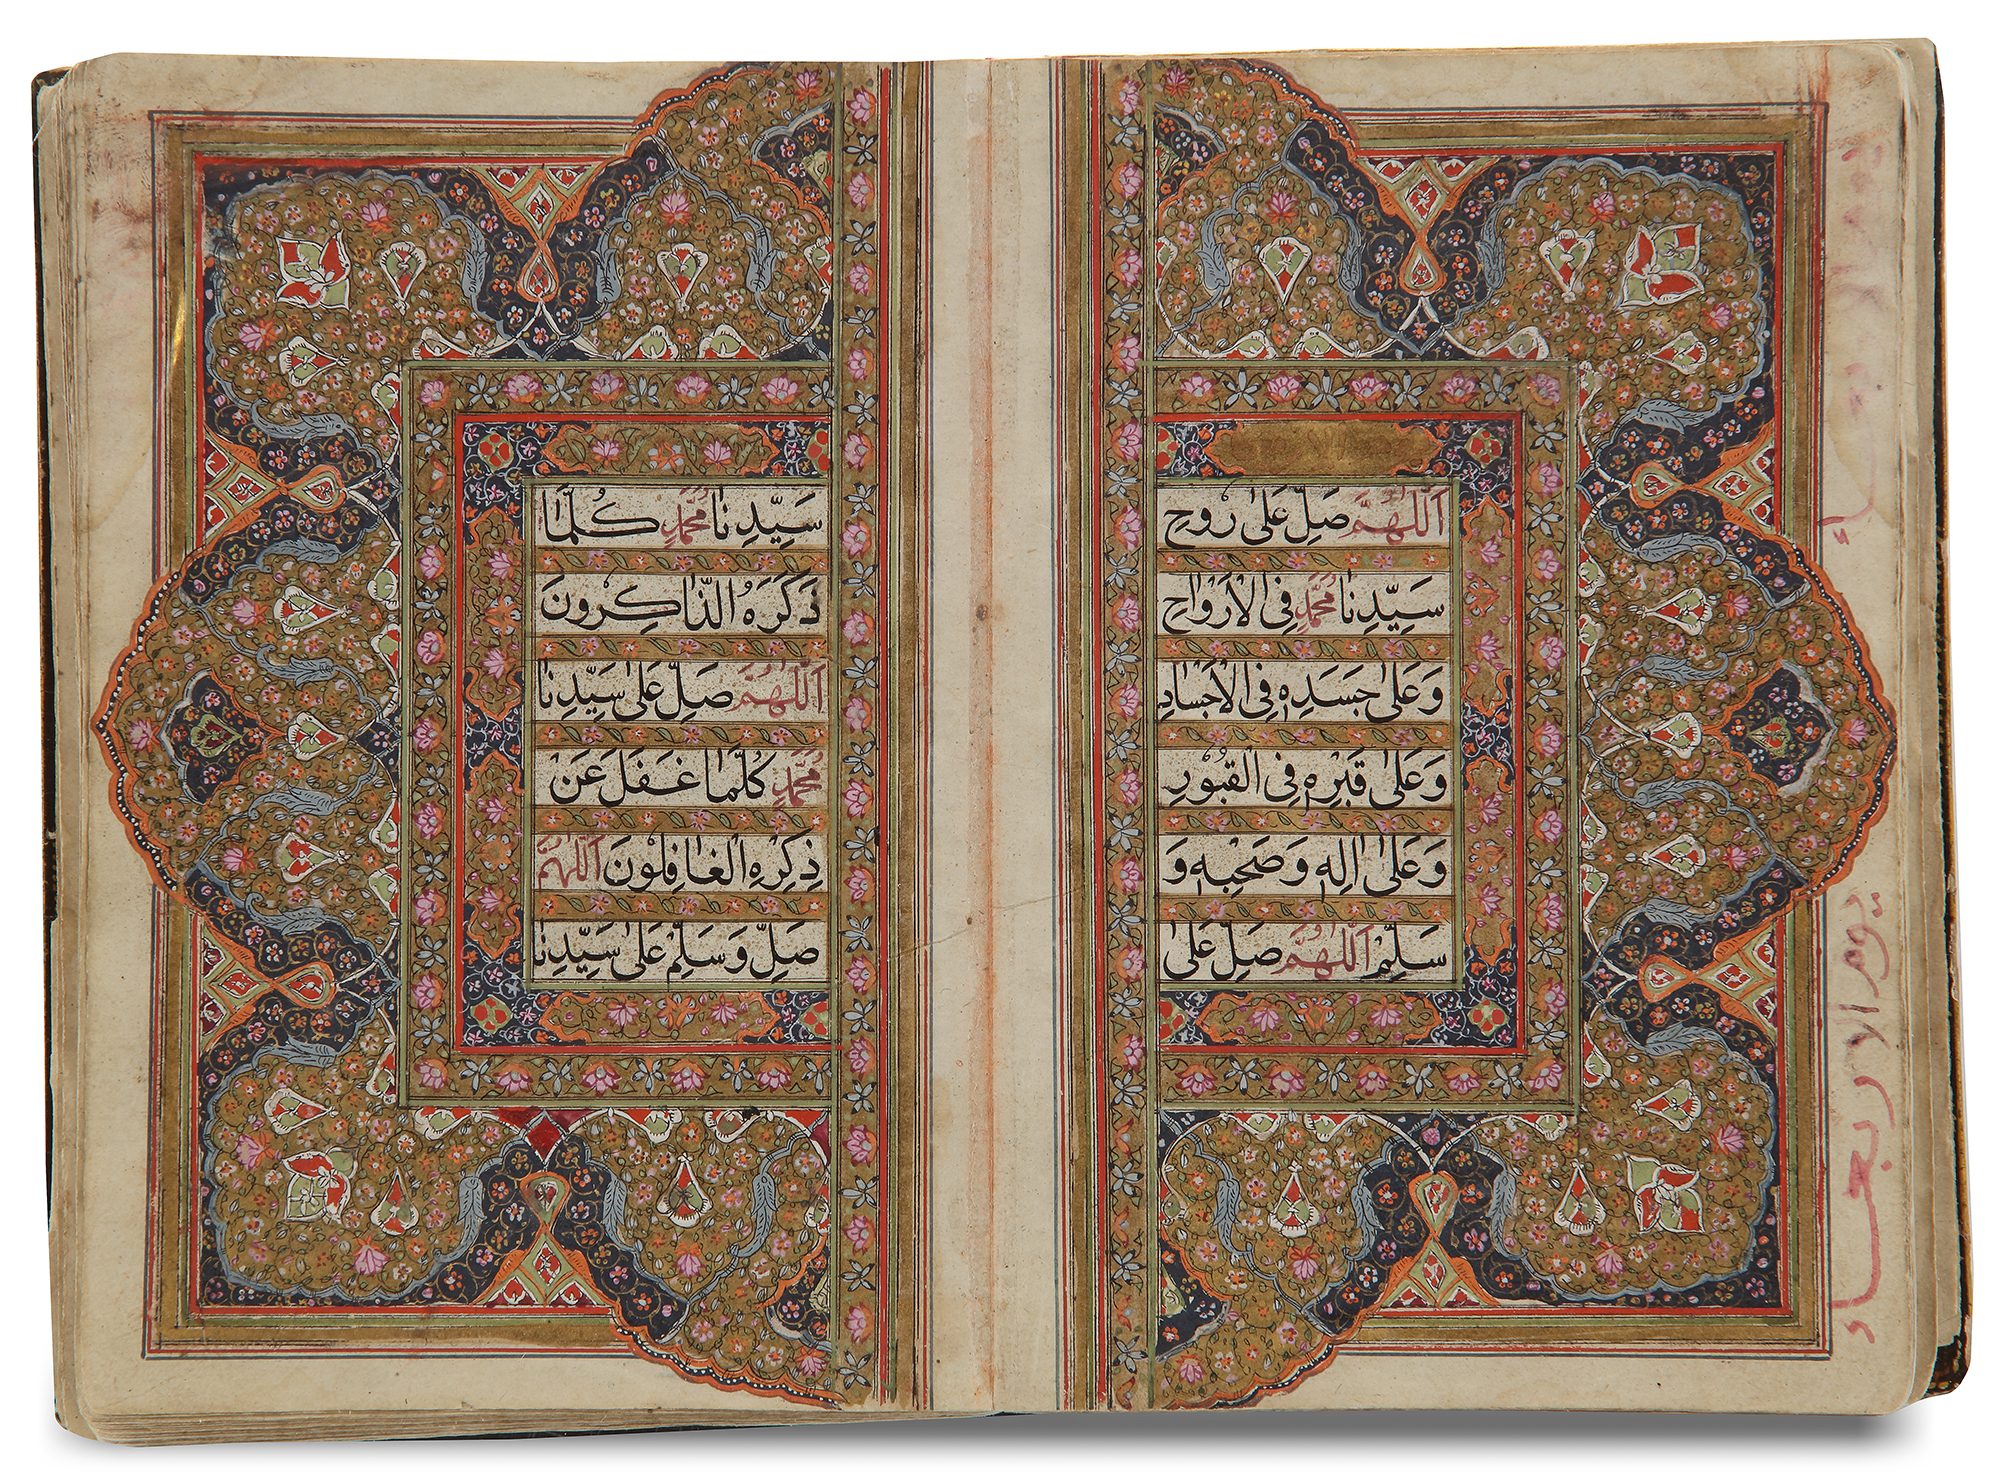 اَللّٰهُمَّ صَلِّ عَلٰى رُوْحِ
سَيِّدِنَا مُحَمَّدٍ فِى الْاَرْوَاحِ
وَعَلٰى جَسَدِهٖ فِى الْاَجْسَادِ
وَعَلٰى قَبْرِهٖ فِى الْقُبُوْرِ
وَعَلٰى اٰلِهٖ وَصَحْبِهٖ وَ
سَلِّمْ اَللّٰهُمَّ صَلِّ عَلٰى
سَيِّدِنَا مُحَمَّدٍ كُلَّمَا
ذَكَرَهُ الذَّاكِرُوْنَ
اَللّٰهُمَّ صَلِّ عَلٰى سَيِّدِنَا
مُحَمَّدٍ كُلَّمَا غَفَلَ عَنْ
ذِكْرِهِ الْغَافِلُوْنَ اَللّٰهُمَّ
صَلِّ وَسَلِّمْ عَلٰى سَيِّدِنَا
يوم الا